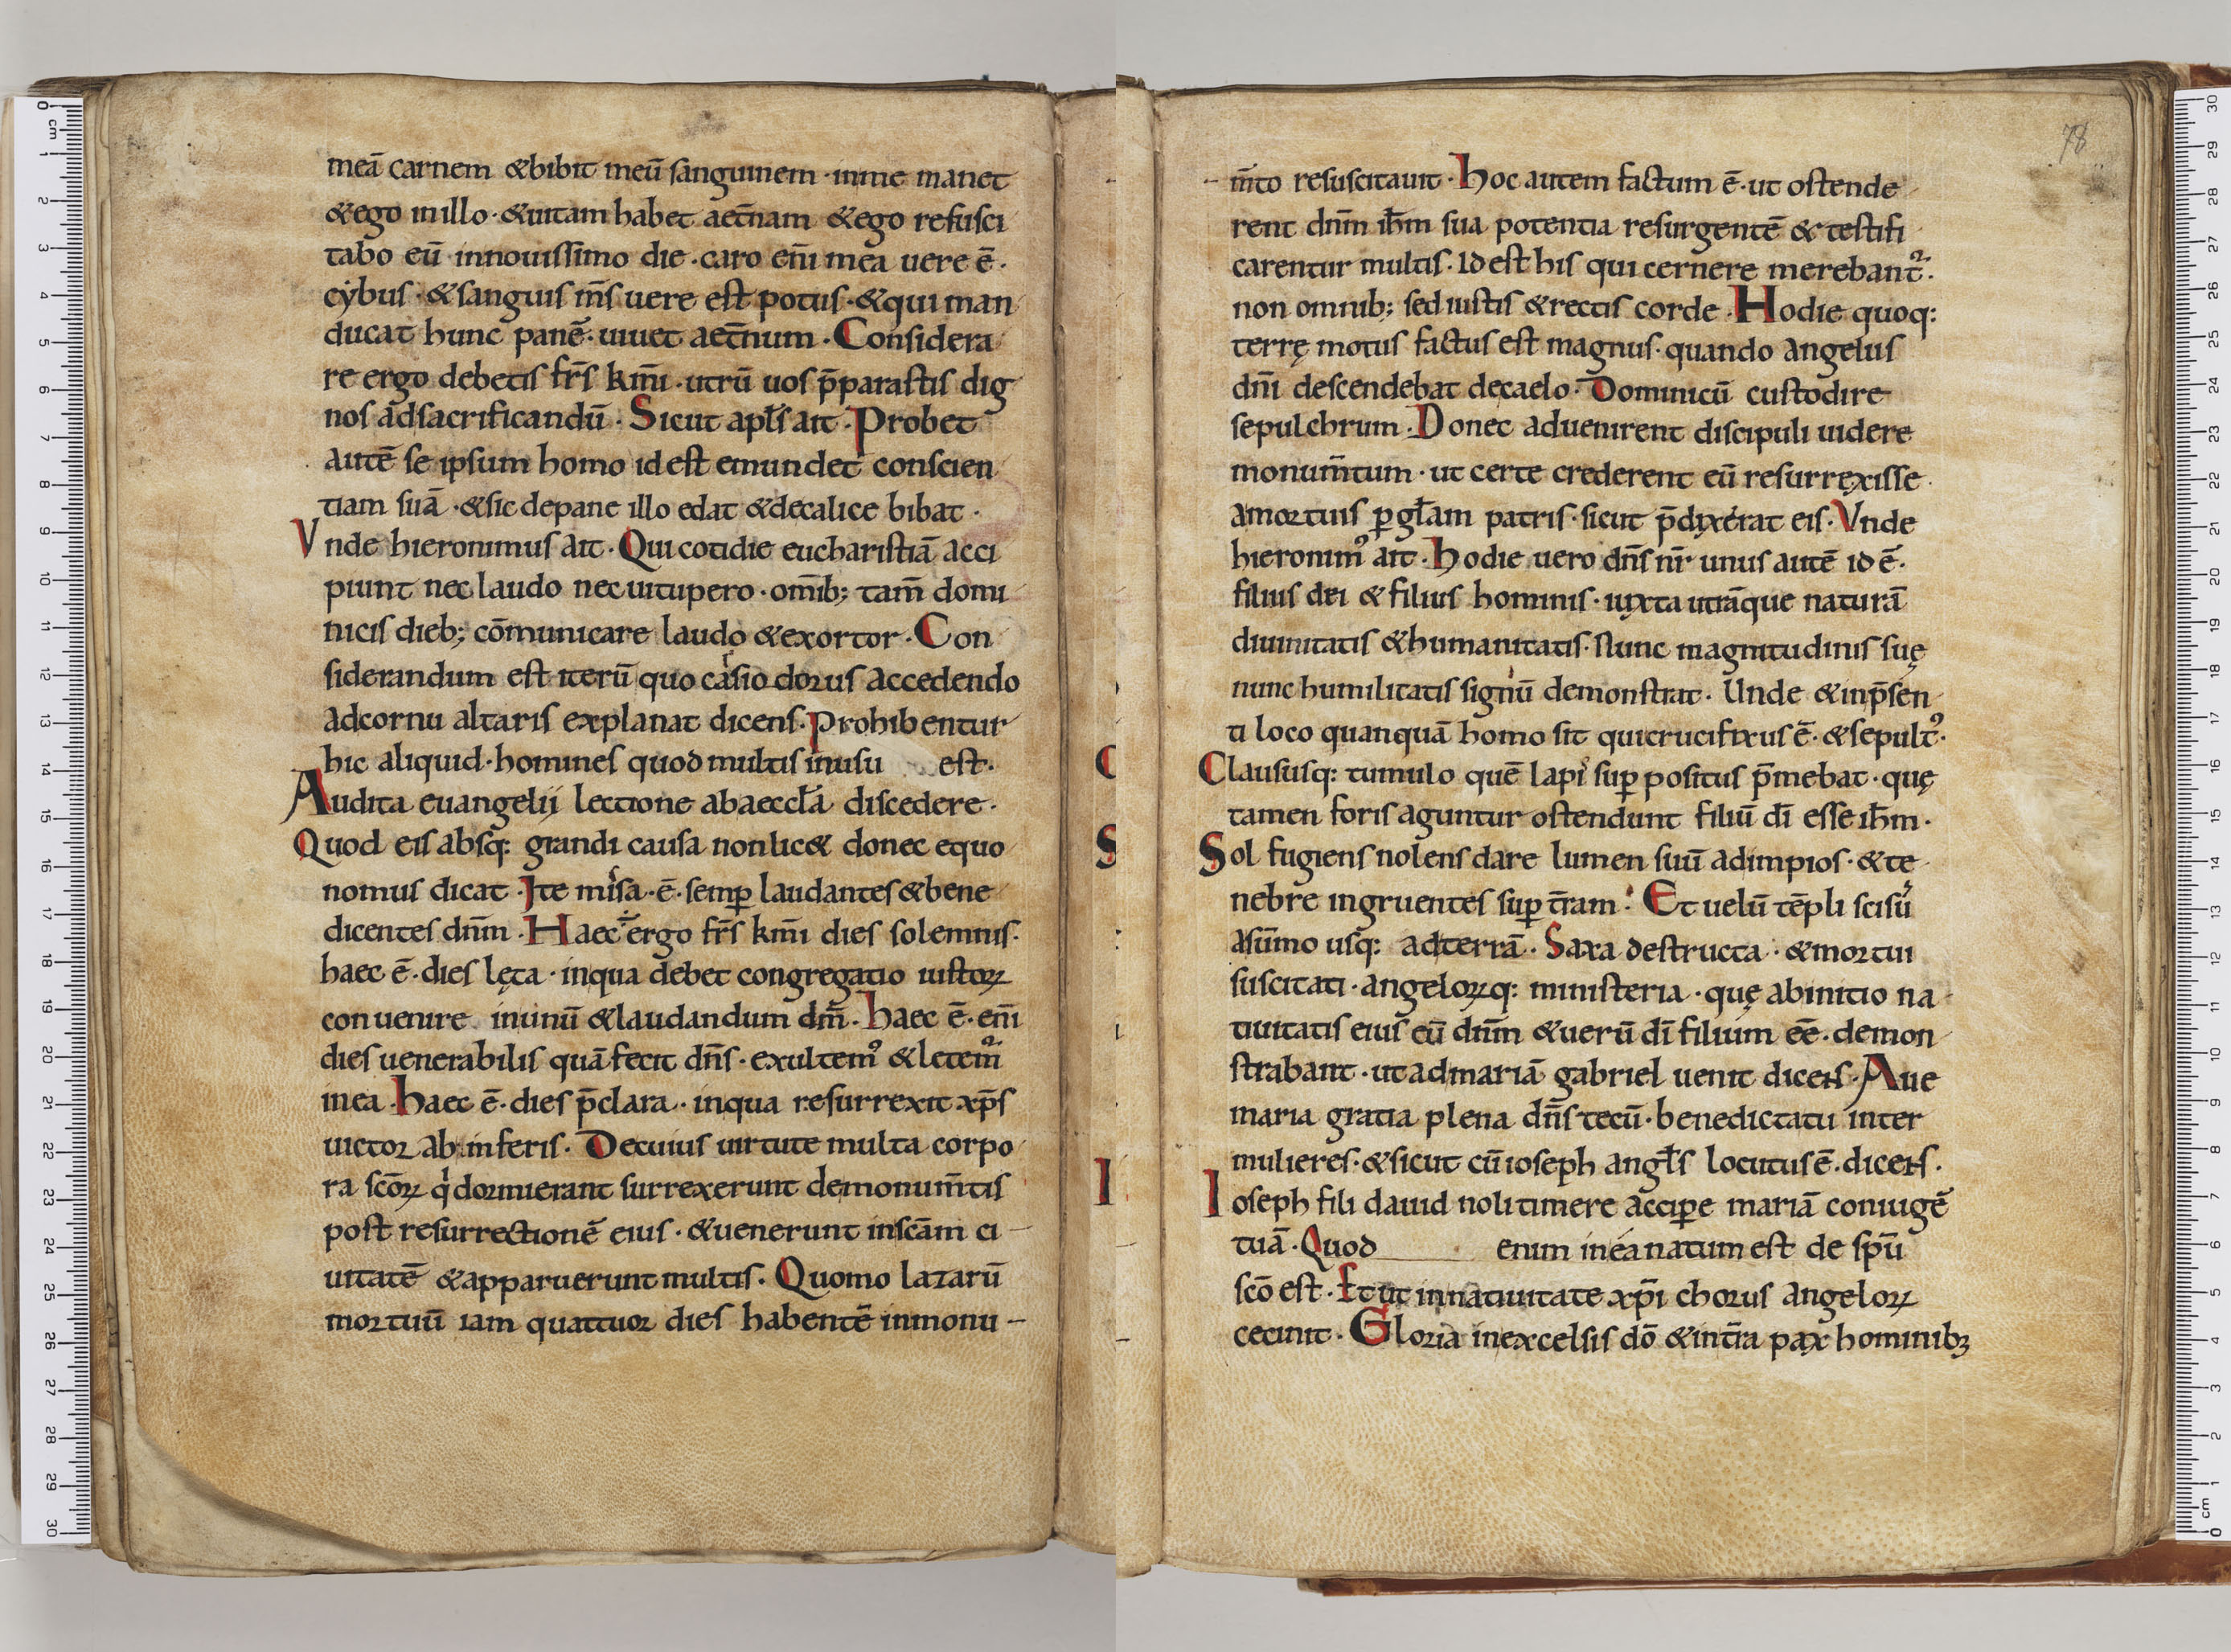 meā carnem &bibit meū sanguinem · inme manet
&ego inillo · &uitam habet aet̄nam &ego resusci
tabo eū innouissimo die · caro eni̅ mea uere ē ·
cybus · &sanguis m̄s uere est potus · &qui man
ducat hunc panē · uiuet aet̄num · Considera
re ergo debetis fr̄s km̄i · utrū uos p̄parastis dig
nos adsacrificandū · Sicut apl̄s ait · Probet
autē se ipsum homo id est emundet conscien
tiam suā · &sic depane illo edat &decalice bibat ·
Vnde hieronimus ait · Qui cotidie eucharistiā acci
piunt nec laudo nec uitupero · om̄ib; tam̄ domi
nicis dieb; cōmunicare laudo &exortor · Con
siderandum est iterū quo casiodorus accedendo
adcornu altaris explanat dicens · Prohibentur
hic aliquid · homines quod multis inusu est ·
Audita euangelij lectione abaeccl̄a discedere ·
Quod eis absq: grandi causa nonlic& donec equo
nomus dicat · Ite misa · ē · semꝑ laudantes &bene
dicentes dn̄m · Haec ergo fr̄s km̄i dies solemnis ·
haec ē · dies lęta · inqua debet congregatio iustoꝝ
conuenire inunū &laudandum dm̄ · haec ē · eni̅
dies uenerabilis quā fecit dn̄s · exultem᾿ &letem᾿
inea · haec ē · dies p̄clara · inqua resurrexit xp̄s
uictor ab inferis · Decuius uirtute multa corpo
ra scōꝝ qⁱ dormierant surrexerunt demonum̄tis
post resurrectionē eius · &uenerunt inscām ci
uitatē &apparuerunt multis · Quomo lazarū
mortuū iam quattuor dies habentē inmonu
78
m̄to resuscitauit · Hoc autem factum ē · ut ostende
rent dn̄m ih̄m sua potentia resurgentē & testifi
carentur multis · id est his qui cernere merebant᾿ ·
non omnib; sed iustis &rectis corde · Hodie quoq:
terrę motus factus est magnus · quando angelus
dn̄i descendebat decaelo · Dominicū custodire
sepulchrum · Donec aduenirent discipuli uidere
monum̄tum · ut certe crederent eū resurrexisse
amortuis ꝑ gl̄am patris · sicut p̄dixerat eis · Vnde
hieronim᾿ ait · hodie uero dn̄s nr̄ unus autē id ē ·
filius dei & filius hominis · iuxta utrāque naturā
diuinitatis &humanitatis · Nunc magnitudinis suę
nunc humilitatis signū demonstrat · Unde &inp̄sen
ti loco quanquā homo sit quicrucifixus ē · &sepult᾿ ·
Claususq: tumulo quē lapiˢ suꝑ positus p̄mebat · quę
tamen foris aguntur ostendunt filiū dī esse ih̄m ·
Sol fugiens nolens dare lumen suū adimpios · &te
nebre ingruentes suꝑ t̄ram · Et uelū tēpli scisū
asūmo usq: adterrā · Saxa destructa · &mortui
suscitati · angeloꝝq: ministeria · quę abinitio na
tiuitatis eius eū dn̄m &uerū dī filium eē · demon
strabant · ut admariā gabriel uenit dicens · Aue
maria gratia plena dn̄s tecū · benedictatu inter
mulieres · &sicut cū ioseph angl̄s locutus ē · dicens ·
Ioseph fili dauid noli timere acciꝑe mariā coniugē
tuā · Quod enim inea natum est de spū
scō est · Et ut innatiuitate xp̄i chorus angeloꝝ
cecinit · Gloria inexcelsis dō &int̄ra pax hominibꝫ